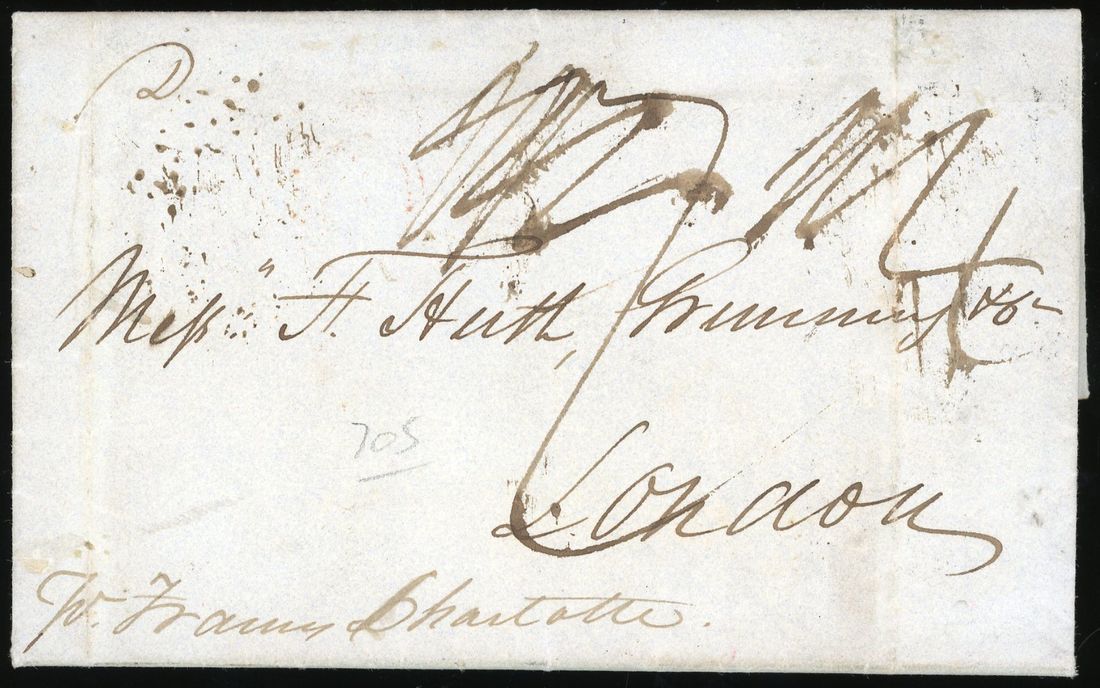 D
Mess.rs F. Huth, Grunning & Co
London
705
Pr. Frances Charlotte.